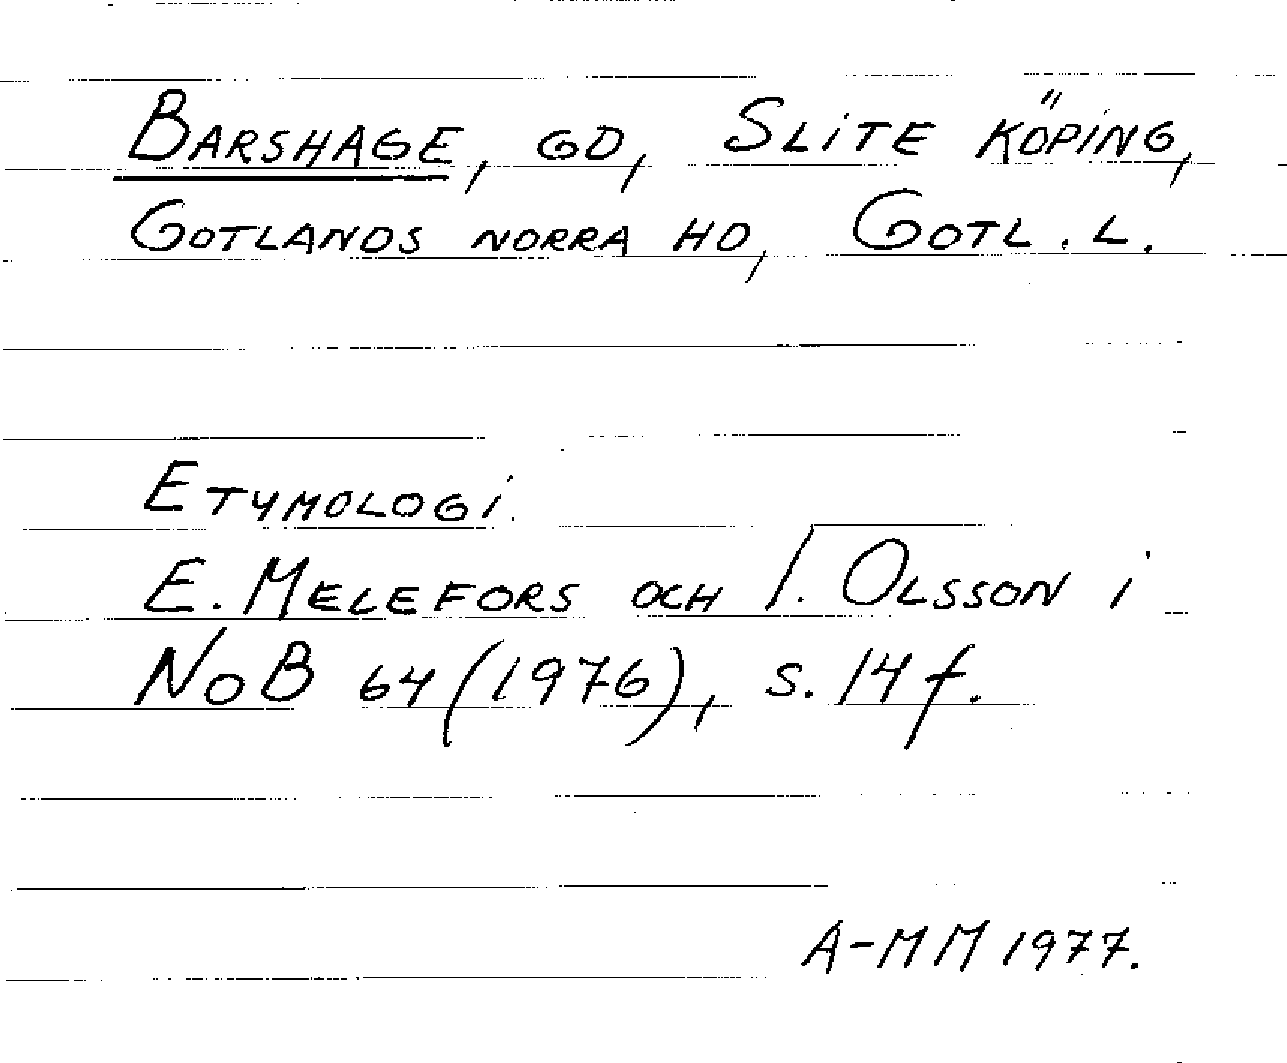 BARSHAGE, GD, SLITE KÖPING,
GOTLANDS NORRA HD, GOTL. L.
ETYMOLOGI.
E. MELEFORS OCH I. OLSSON i
NoB 64 (1976), s. 14 f.
A-MM 1977.